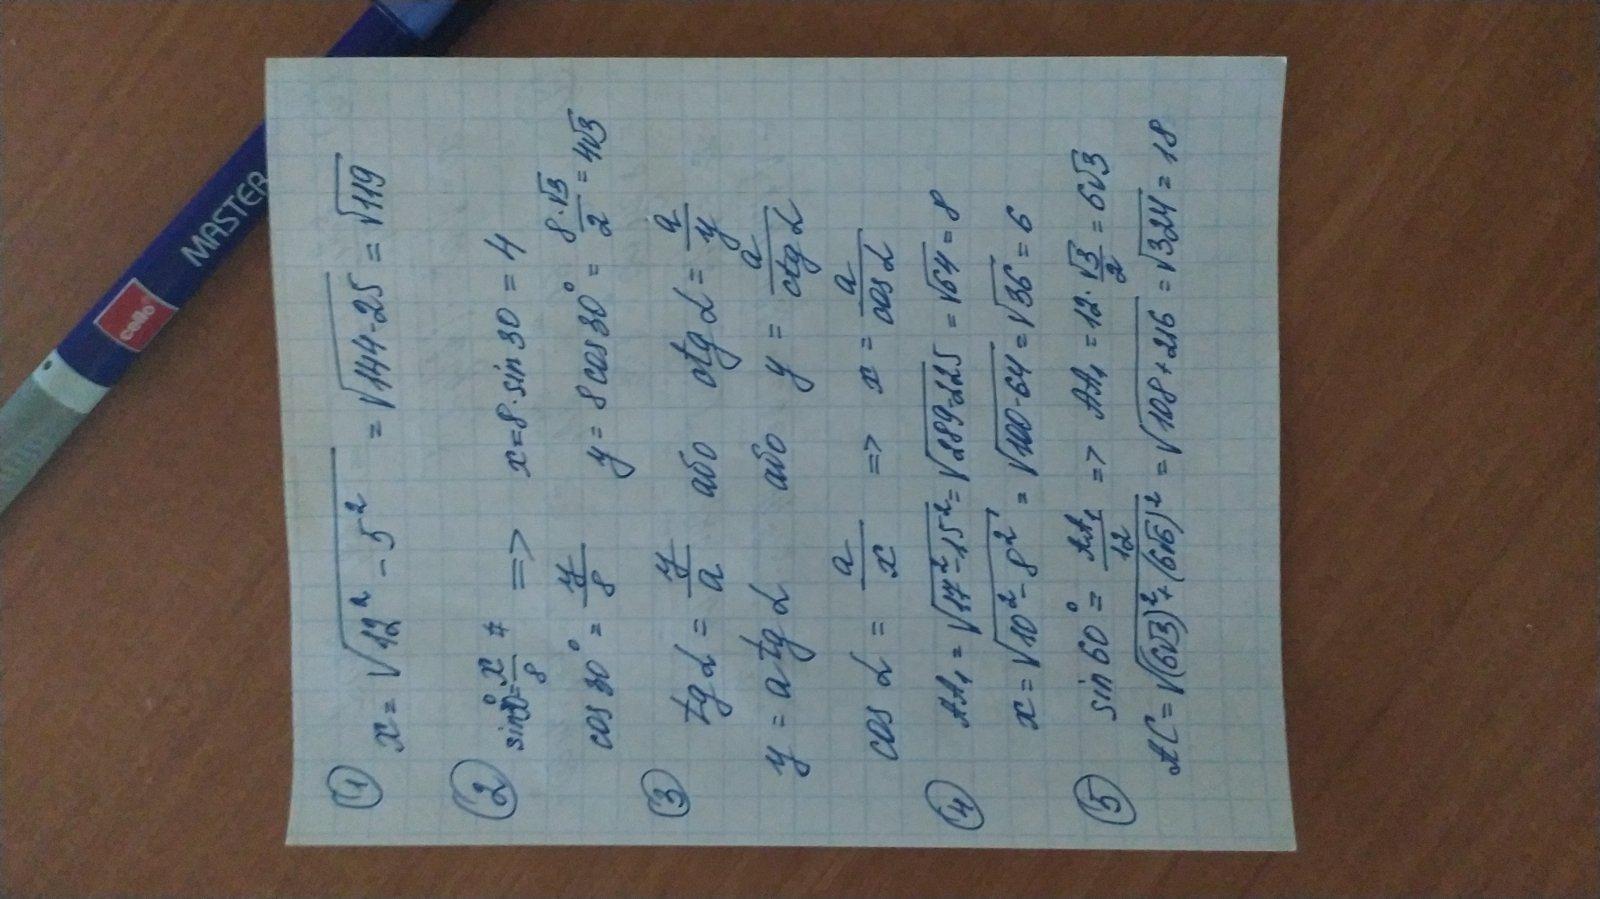 ① x = √(12² - 5²) = √(144-25) = √119
② sin30° = x/8 => x = 8·sin 30 = 4
cos 30° = y/8 y = 8 cos 30° = 8·√3/2 = 4√3
③ tg α = y/a або ctg α = a/y
y = a tg α або y = a/ctg α
cos α = a/x => x = a/cos α
④ AA₁ = √(17²-15²) = √(289-225) = √64 = 8
x = √(10² - 8²) = √(100-64) = √36 = 6
⑤ sin 60° = AA₁/12 => AA₁ = 12·√3/2 = 6√3
AC = √((6√3)² + (6√6)²) = √(108+216) = √324 = 18
cello
MASTER